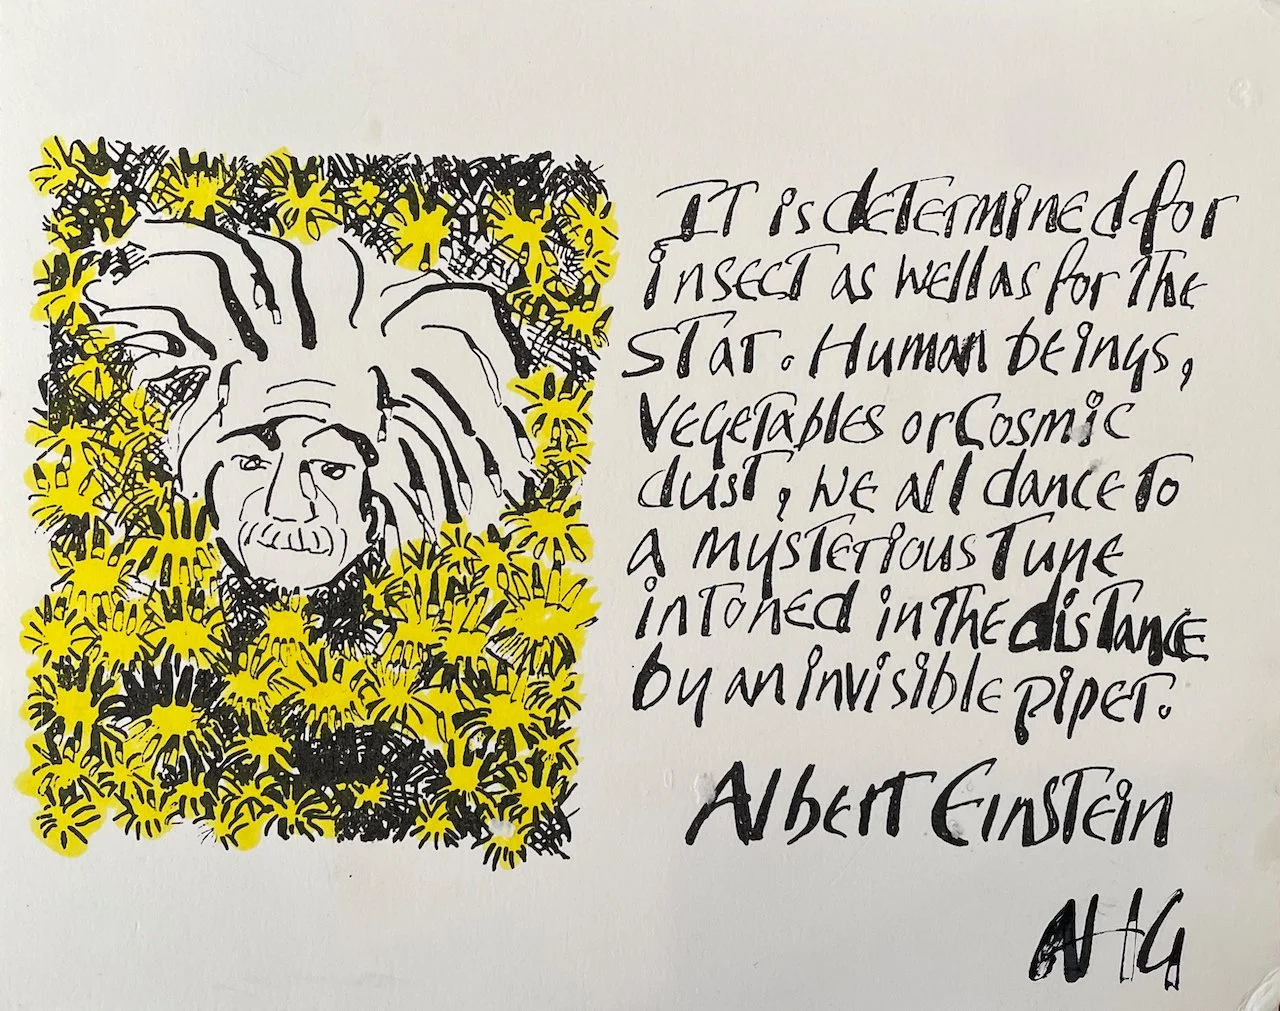 IT is determined for
insect as well as for the
star. Human beings,
vegetables or Cosmic
dust, we all dance to
a mysterious tune
intoned in the distance
by an invisible piper.
Albert Einstein
AHG